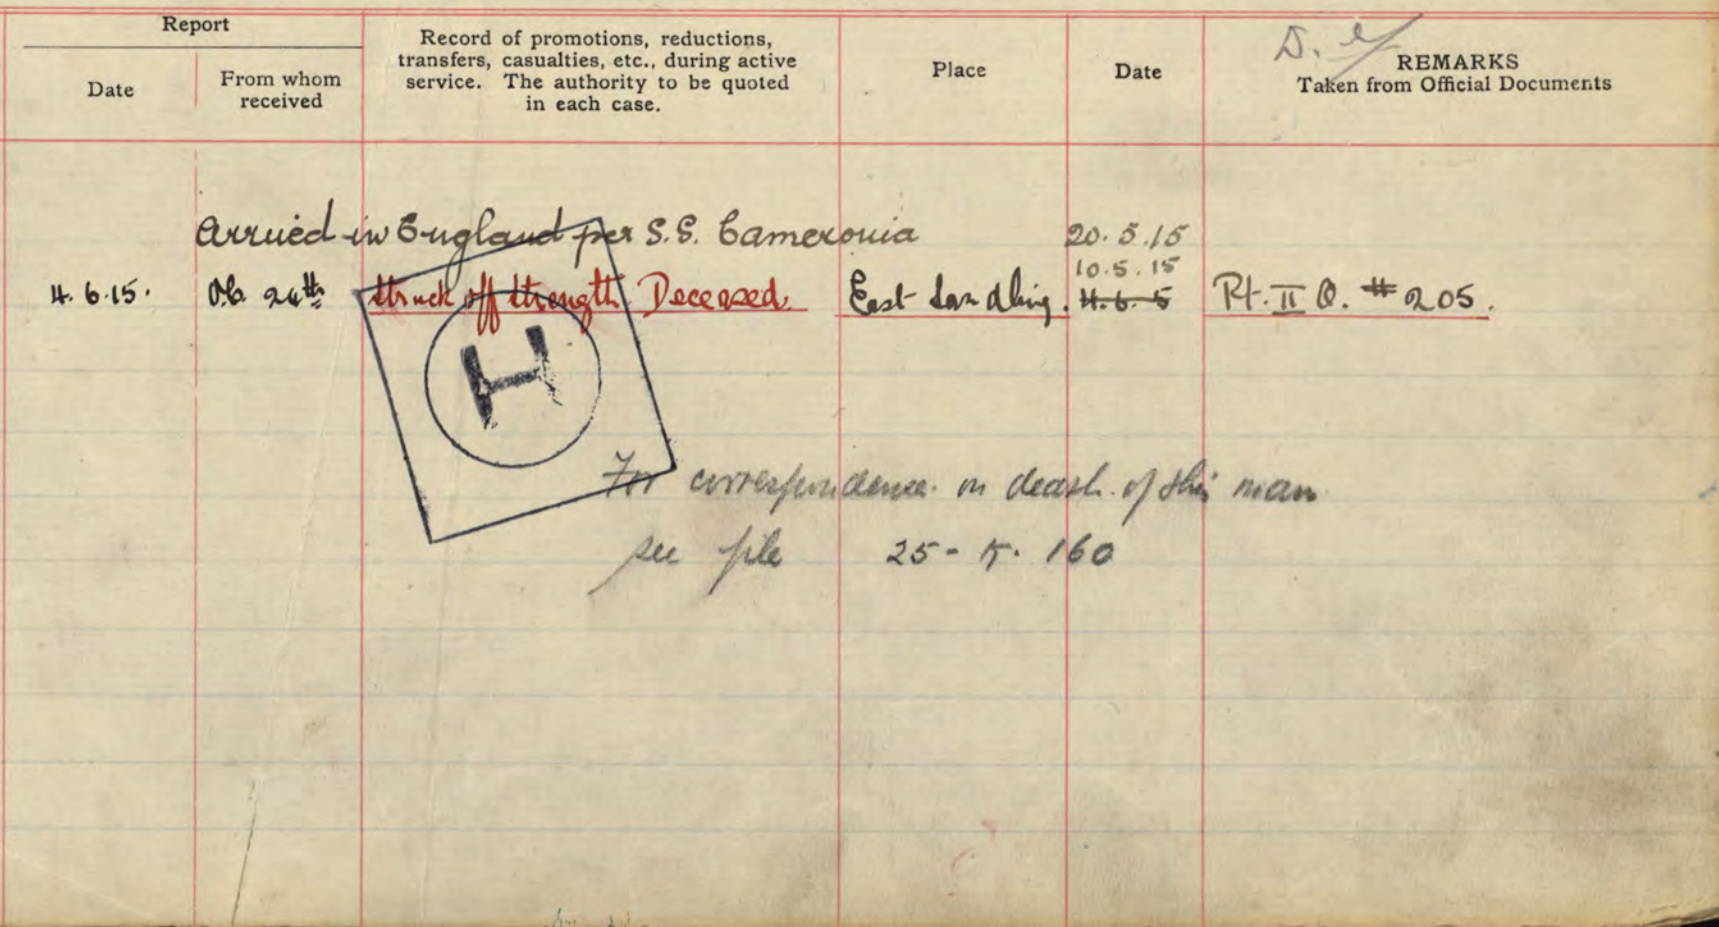 Report
Date
From whom
received
Record of promotions, reductions,
transfers, casualties, etc., during active
service. The authority to be quoted
in each case.
Place
Date
REMARKS
Taken from Official Documents
Arrived in England per S.S. Cameronia 20.5.15
10.5.15
4.6.15. O.C. 24th Struck off strength Deceased. East Sandling. 4.6.5 Pt. II O. # 205.
H
For correspondence on death of this man
see file 25 - 160